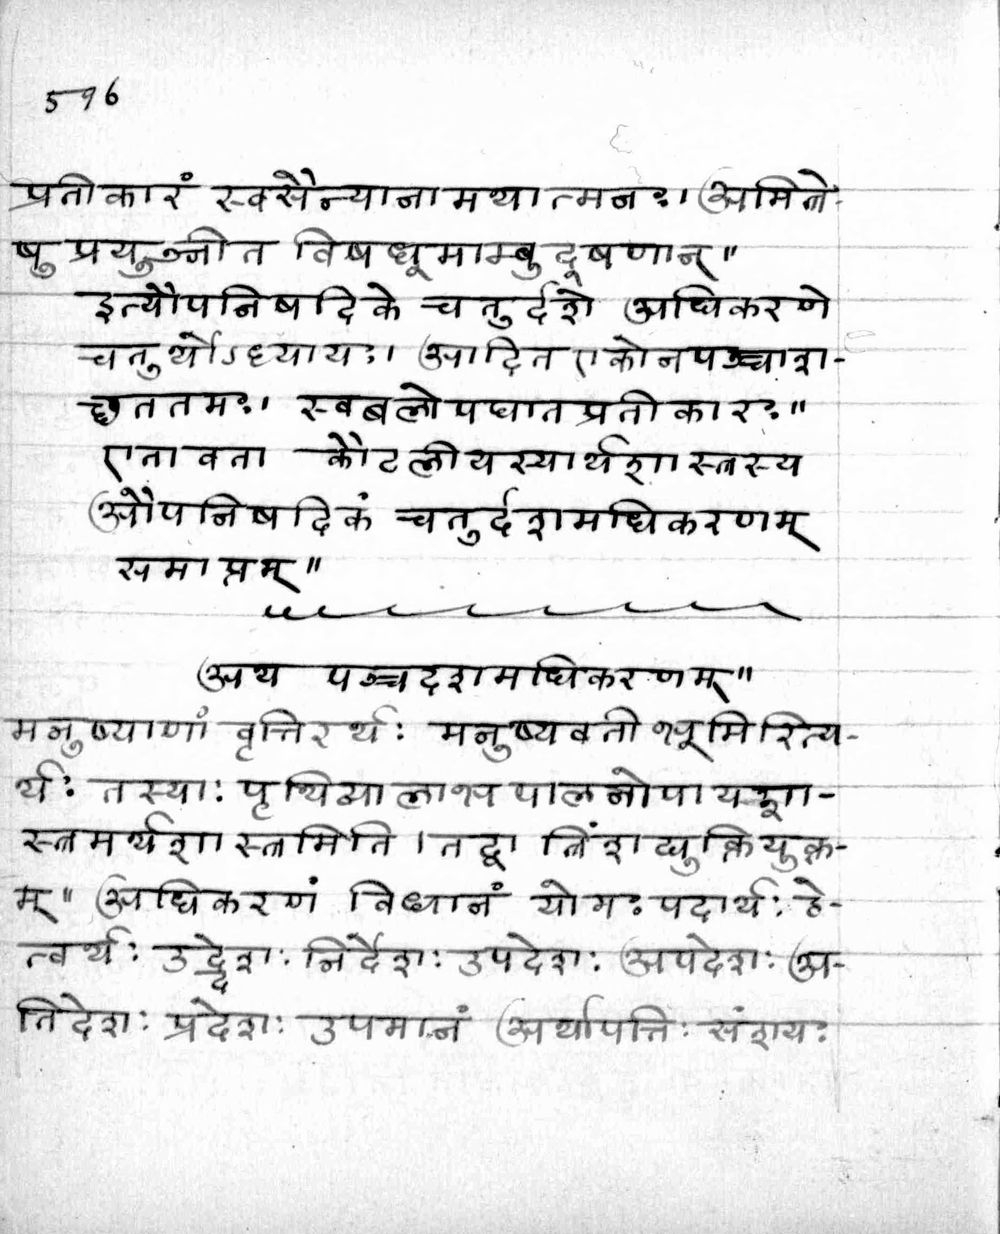 596
प्रतीकारं स्वसैन्यानामथात्मनः। अमित्रे-
षु प्रयुञ्जीत विषधूमाम्बुदूषणान्॥
इत्यौपनिषदिके चतुर्दशे अधिकरणे
चतुर्थोऽध्यायः। आदित एकोनपञ्चाश-
च्छततमः। स्वबलोपघातप्रतीकारः॥
एतावता कौटलीयस्यार्थशास्त्रस्य
औपनिषदिकं चतुर्दशमधिकरणम्
समाप्तम्॥
अथ पञ्चदशमधिकरणम्॥
मनुष्याणां वृत्तिरर्थः मनुष्यवती भूमिरित्य-
र्थः तस्याः पृथिव्या लाभपालनोपायशा-
स्त्रमर्थशास्त्रमिति। तद्वात्रिंशद्युक्तियुक्त-
म्॥ अधिकरणं विधानं योगः पदार्थः हे-
त्वर्थः उद्देशः निर्देशः उपदेशः अपदेशः अ-
तिदेशः प्रदेशः उपमानं अर्थापत्तिः संशयः